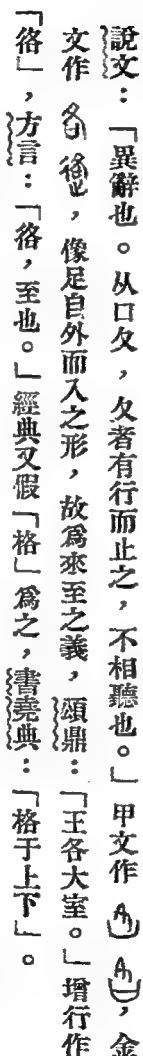 說文：「異辭也。从口夂，夂者有行而止之，不相聽也。」甲文作，金
文作，像足自外而入之形，故爲來至之義，頌鼎：「王各大室。」增行作
「𢓜」，方言：「𢓜，至也。」經典又假「格」爲之，書堯典：「格于上下」。